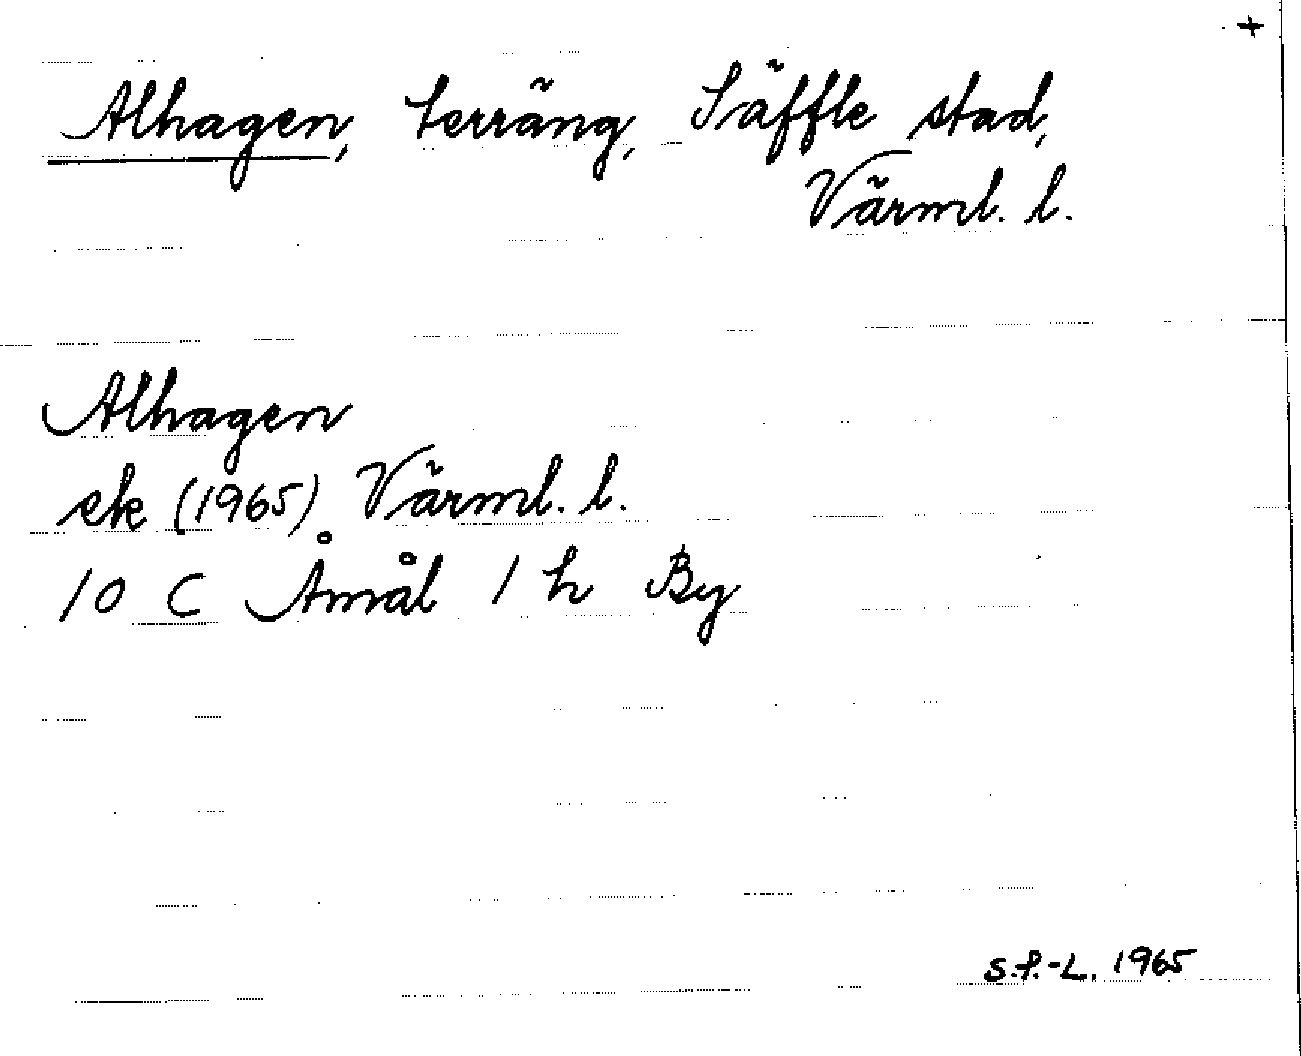 +
Alhagen, terräng, Säffle stad,
Värml. l.
Alhagen
ek (1965) Värml. l.
10 C Åmål 1 h By
S.F.-L. 1965